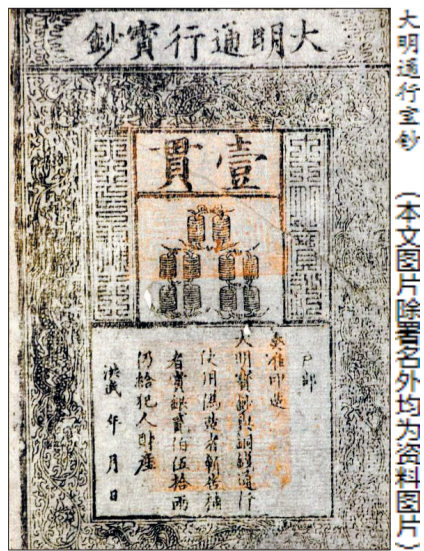 大明通行寶鈔
壹貫
戶部
奏准印造
大明寶鈔與銅錢通行
使用偽造者斬告捕
者賞銀貳佰伍拾兩
仍給犯人財產
洪武 年 月 日
大明通行宝钞 （本文图片除署名外均为资料图片）